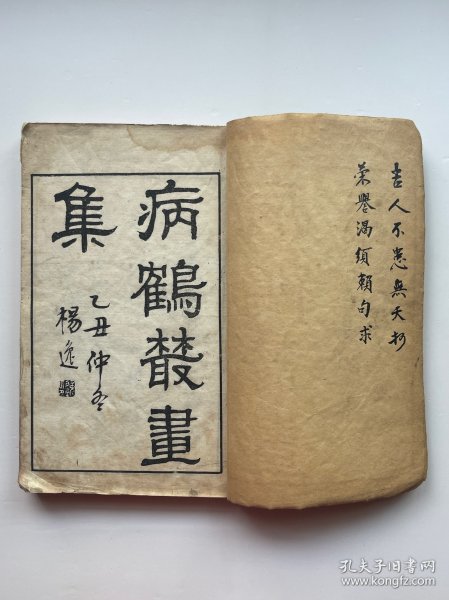 病鶴叢畫
集
乙丑仲冬
楊逸
吉人不患無天相
榮譽渴須賴自求
孔夫子旧书网
www.kongfz.com